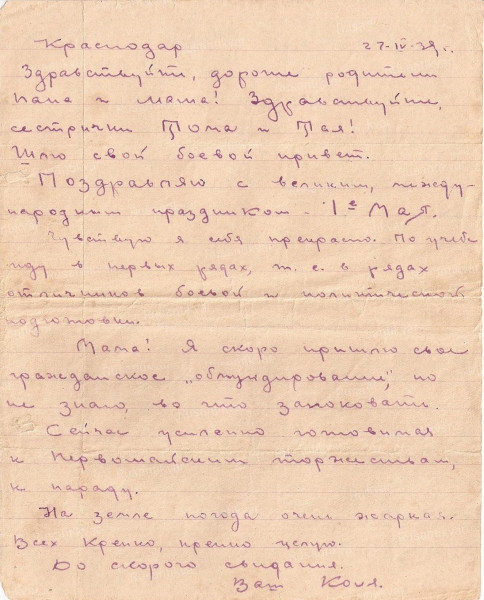 Краснодар 27-IV-39 г.
Здравствуйте, дорогие родители
папа и мама! Здравствуйте,
сестрички Тома и Тая!
Шлю свой боевой привет.
Поздравляю с великим, между-
народным праздником - 1е Мая.
Чувствую я себя прекрасно. По учебе
иду в первых рядах, т. е. в рядах
отличников боевой и политической
подготовки.
Мама! Я скоро пришлю свое
гражданское „обмундирование", но
не знаю, во что запаковать.
Сейчас усиленно готовимся
к Первомайским торжествам,
к параду.
На земле погода очень жаркая.
Всех крепко, крепко целую.
До скорого свидания.
Ваш Коля.